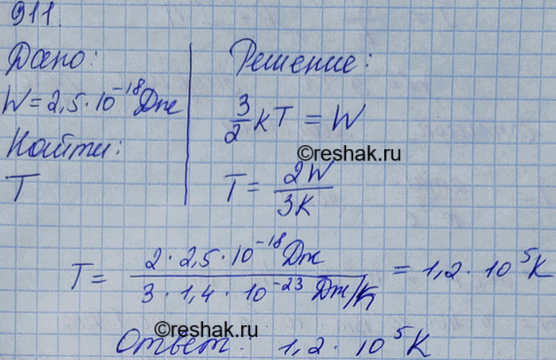 911.
Дано:
W = 2,5 · 10⁻¹⁸ Дж
Найти:
T
Решение:
3/2 kT = W
©reshak.ru
T = 2W / 3k
T = 2 · 2,5 · 10⁻¹⁸ Дж / 3 · 1,4 · 10⁻²³ Дж/К = 1,2 · 10⁵ К
©reshak.ru
Ответ: 1,2 · 10⁵ К